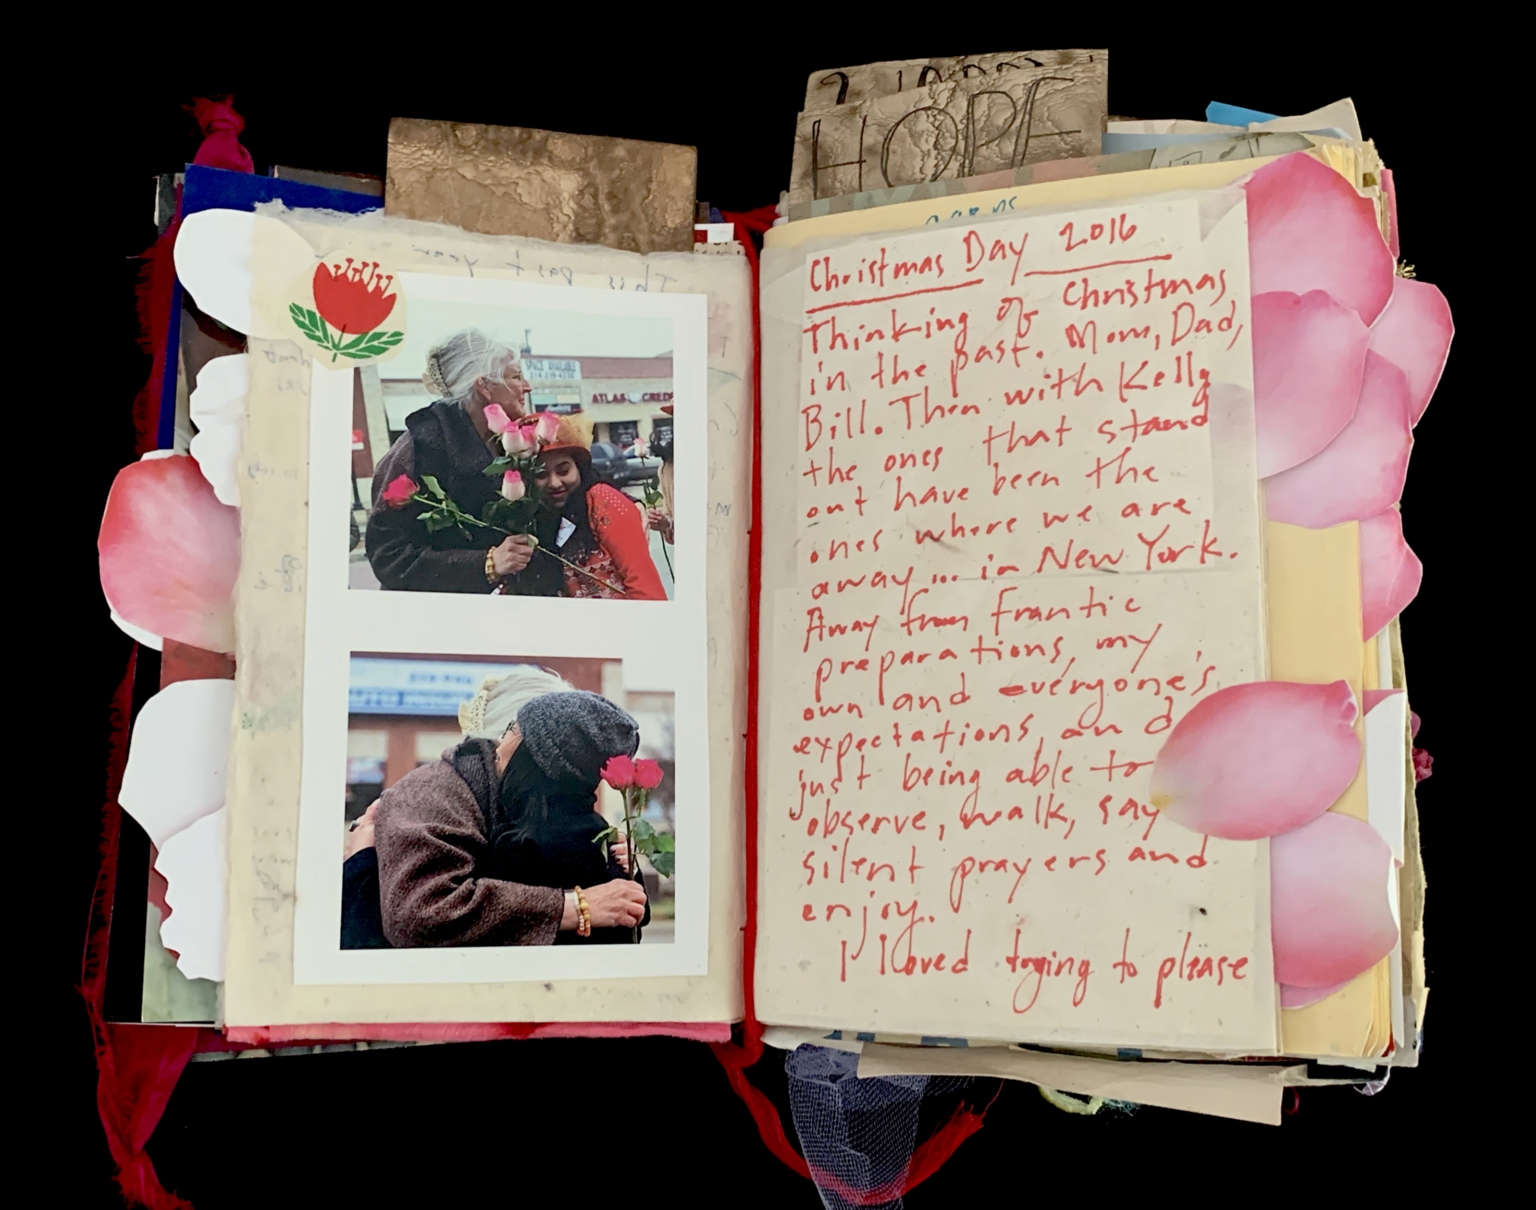 HOPE
This past year
SPACE AVAILABLE
ATLAS CRED
Christmas Day 2016
Thinking of Christmas
in the past. Mom, Dad,
Bill. Then with Kelly
the ones that stand
out have been the
ones where we are
away... in New York.
Away from frantic
preparations, my
own and everyone's
expectations, and
just being able to
observe, walk, say
silent prayers and
enjoy.
I loved trying to please